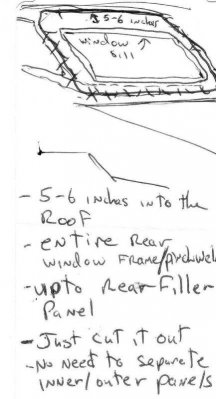 5-6 inches
window
sill
- 5-6 inches into the
Roof
- entire Rear
window Frame/pinchweld
- upto Rear Filler
Panel
- Just cut it out
- No need to separate
inner/outer panels